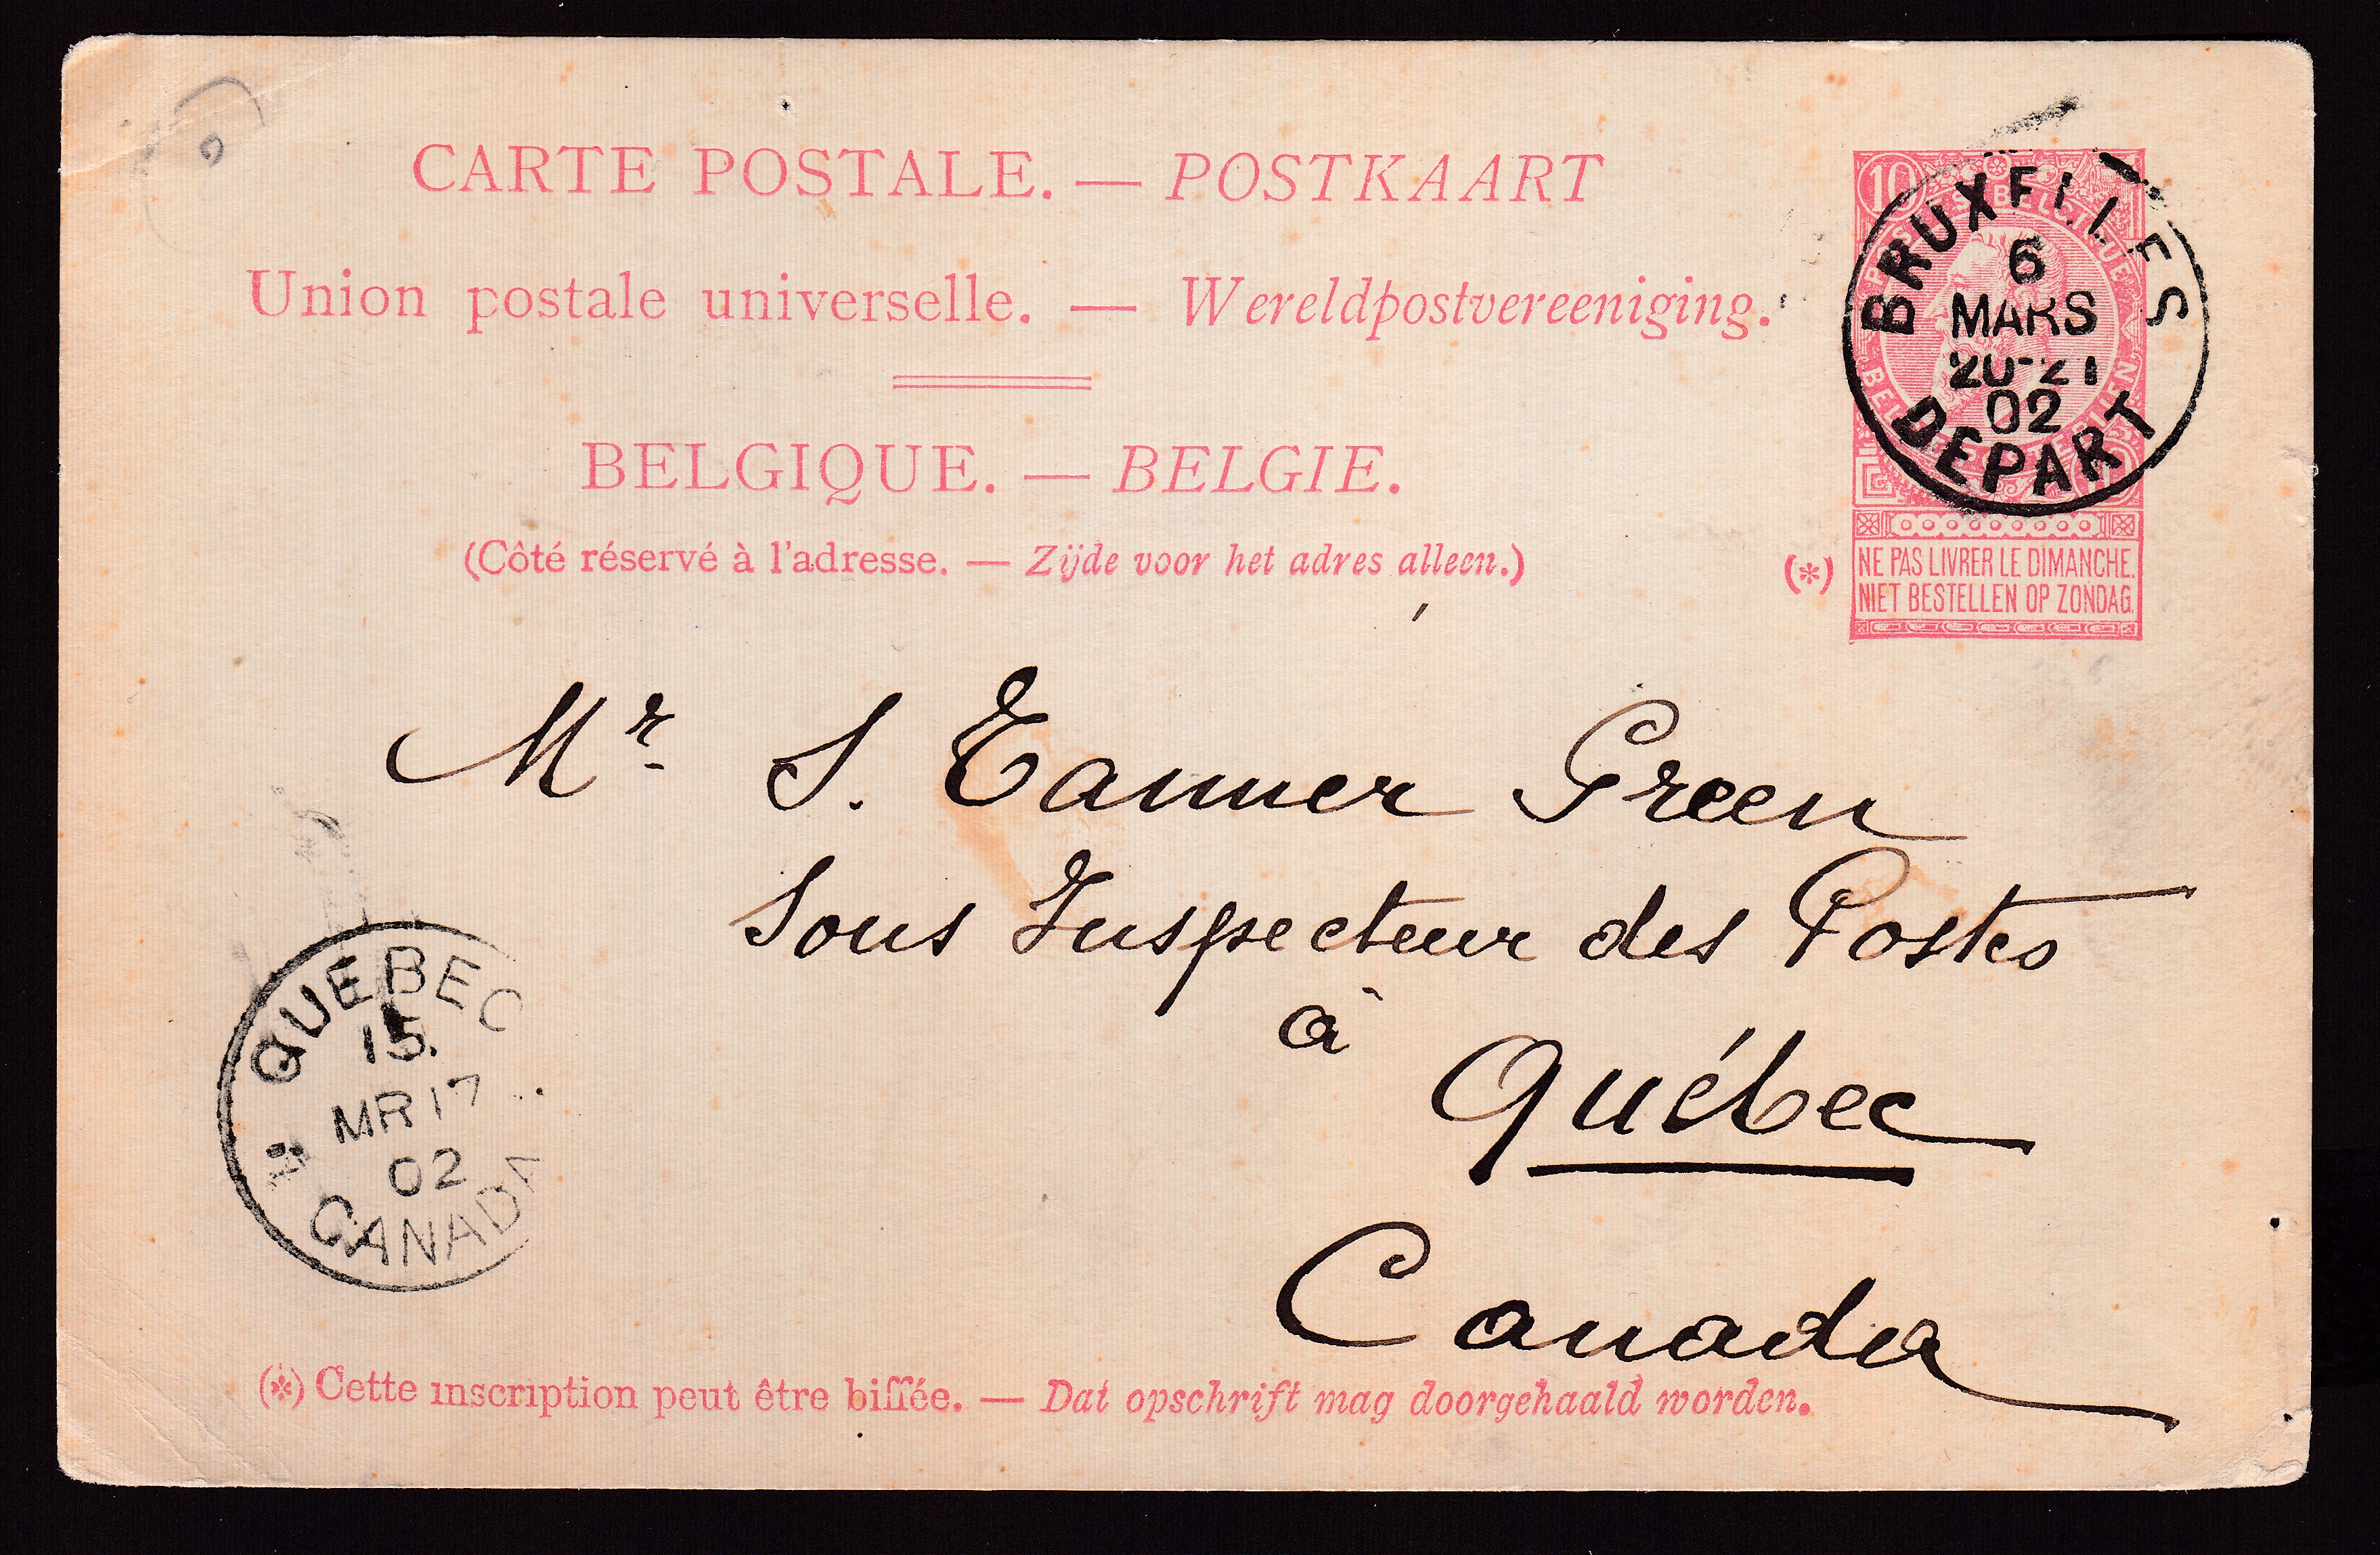 CARTE POSTALE. — POSTKAART
Union postale universelle. — Wereldpostvereeniging.
BELGIQUE. — BELGIE.
(Côté réservé à l'adresse. — Zijde voor het adres alleen.)
10
BRUXELLES
6
MARS
20-21
02
DEPART
(*) NE PAS LIVRER LE DIMANCHE.
NIET BESTELLEN OP ZONDAG.
Mr S. Tanner Green
Sous Inspecteur des Postes
à
Québec
Canada
QUEBEC
15.
MR 17
02
CANADA
(*) Cette inscription peut être biffée. — Dat opschrift mag doorgehaald worden.